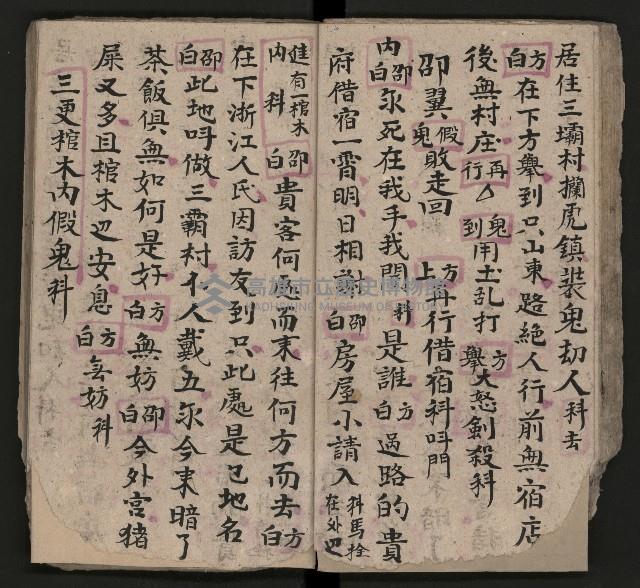 居住三壩村攔虎鎮裝鬼刧人科去
方白在下方舉到只山東路絕人行前無宿店
後無村庄再行△鬼到用土乱打方舉大怒剣殺科
卲翼假鬼敗走回方上再行借宿科呌門
內卲白永死在我手我開科是誰方白過路的貴
府借宿一霄明日相卲白房屋小請入科馬拴在外也
進內有一棺木科卲白貴客何而來往何方而去方白
在下浙江人民因訪友到只此處是乜地名
卲白此地呌做三霸村个人戴五永今來暗了
茶飯俱無如何是好方白無妨卲白今外宫猪
屎又多且棺木边安息方白無妨科
三更棺木內假鬼科
高雄市立歷史博物館
KAOHSIUNG MUSEUM OF HISTORY